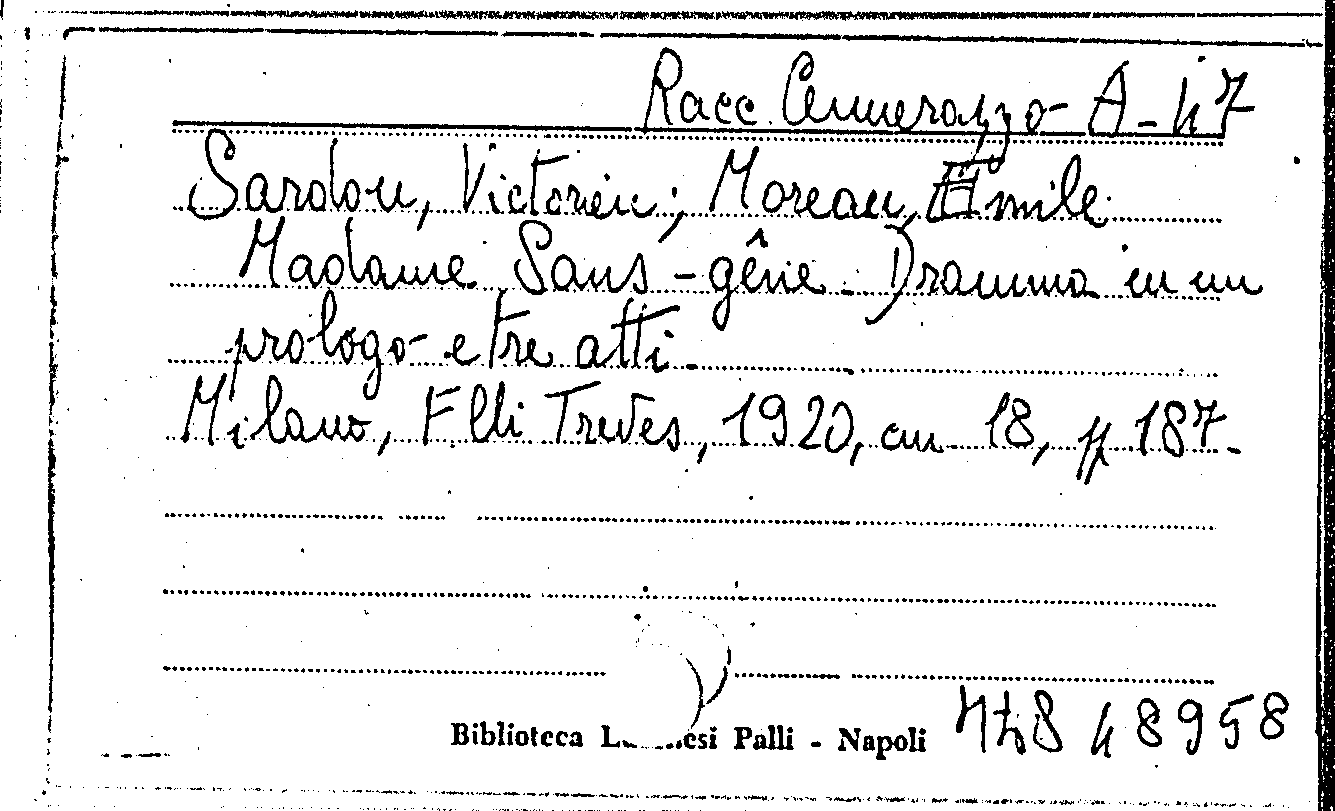 Racc. Cennerazzo A-47
Sardou, Victorien; Moreau, Emile
Madame Sans-gêne. Dramma in un
prologo e tre atti.
Milano, F.lli Treves, 1920, in 18, pp 187.
Biblioteca Palli - Napoli 48958